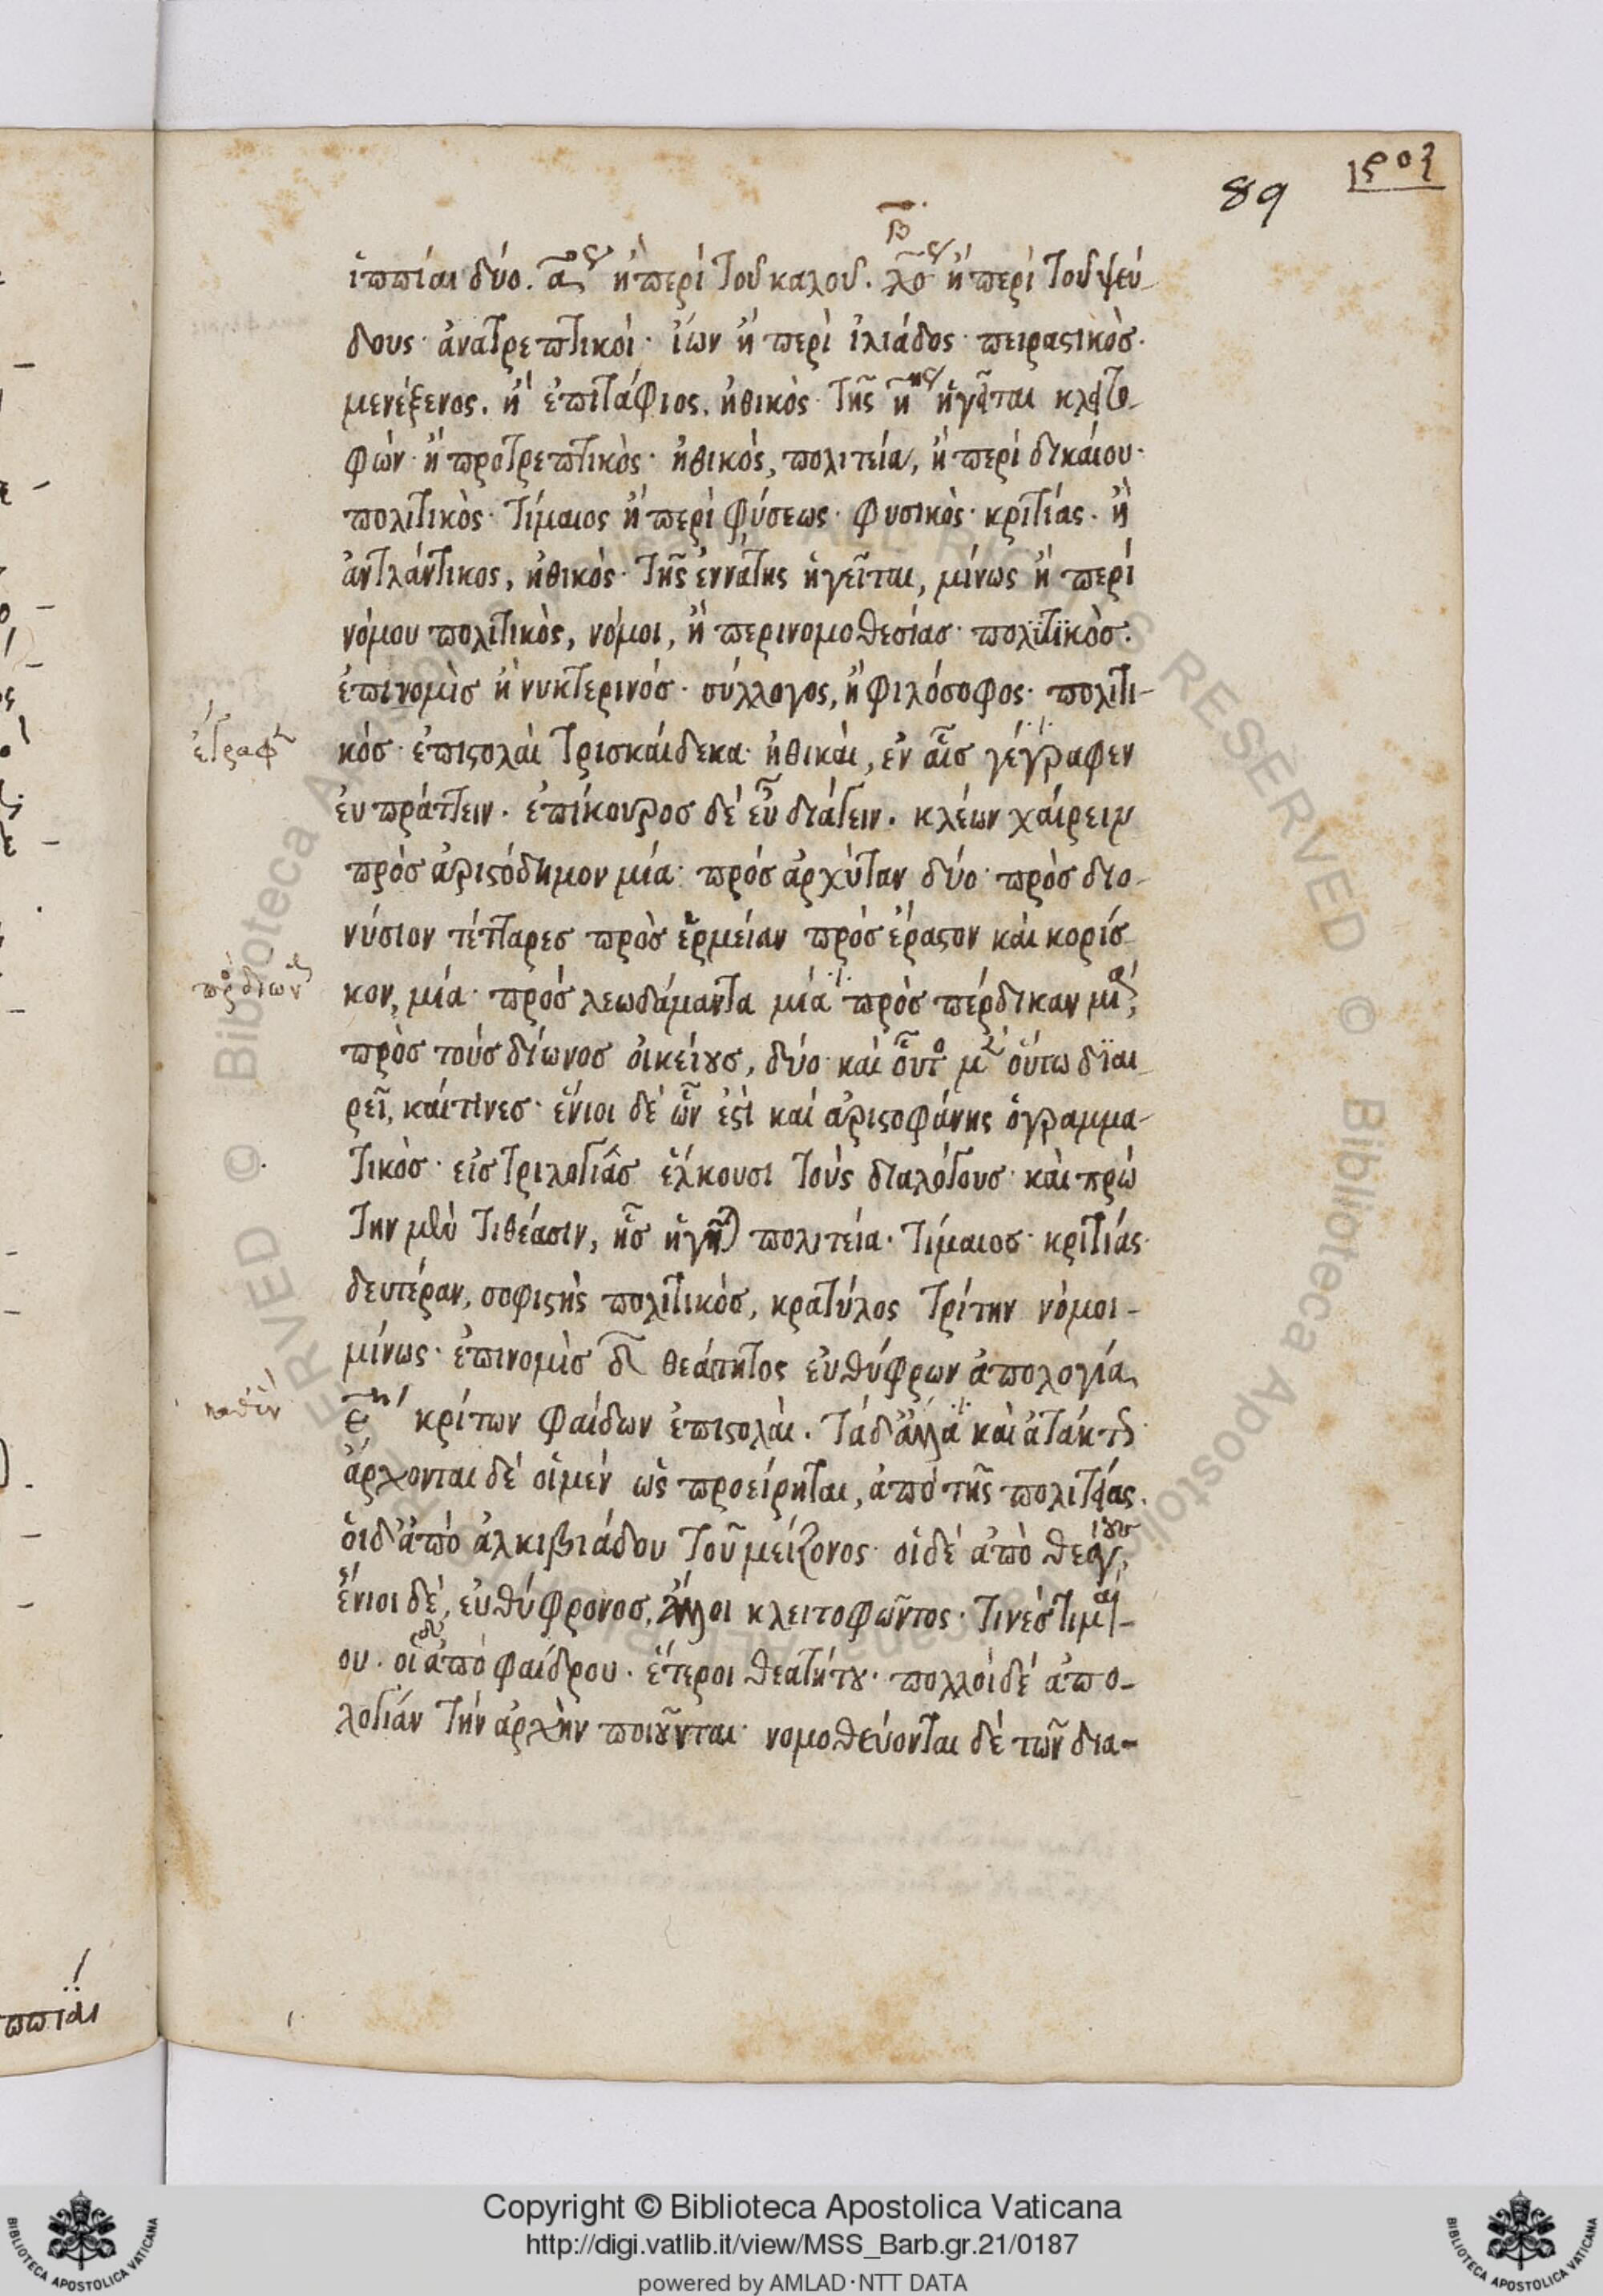 89
ἱππίαι δύο. ἢ περὶ τοῦ καλοῦ. ἢ περὶ τοῦ ψεύ-
δους· ἀνατρεπτικοί· ἴων ἢ περὶ ἰλιάδος· πειραστικὸς·
μενέξενος. ἢ ἐπιτάφιος. ἠθικὸς· τῆς ἡγεῖται κλειτο-
φῶν· ἢ προτρεπτικὸς· ἠθικὸς, πολιτεία, ἢ περὶ δικαίου·
πολιτικὸς· τίμαιος ἢ περὶ φύσεως· φυσικὸς· κριτίας. ἢ
ἀντλάντικος, ἠθικὸς· τῆς ἐννάτης ἡγεῖται, μίνως ἢ περὶ
νόμου πολιτικὸς, νόμοι, ἢ περινομοθεσίας· πολϊτϊκὸς.
ἐπινομὶς ἢ νυκτερινός· σύλλογος, ἢ φιλόσοφος· πολιτι-
κός· ἐπιστολὰι τρισκάιδεκα· ἠθικάι, ἐν αἷς γέγραφεν
ἐυπράττειν. ἐπίκουρος δὲ εὖ διάγειν. κλέων χαίρειν
πρὸς ἀριστόδημον μία· πρὸς ἀρχύταν δύο· πρὸς διο-
νύσιον τέτταρες πρὸς ἑρμείαν πρὸς ἔραστον καὶ κορίσ-
κον, μία· πρὸς λεωδάμαντα μία πρὸς πέρδικαν μία,
πρὸς τοὺς δίωνος οἰκείους, δύο· καὶ οὗτο μὲν οὕτω διαι-
ρεῖ, καίτινες· ἔνιοι δὲ ὧν ἐστὶ καὶ ἀριστοφάνης ὁγραμμα-
τικὸς· εἰς τριλογίας ἕλκουσι τοὺς διαλόγους· καὶ πρώ
την μὲν τιθέασιν, ἧς ἡγῆται πολιτεία. τίμαιος· κριτίας·
δευτέραν, σοφιστὴς πολιτικὸς, κρατύλος τρίτην νόμοι-
μίνως· ἐπινομὶς δ θεάιτητος ἐυθύφρων ἀπολογία
ε κρίτων φαίδων ἐπιστολὰι. τὰδ' ἄλλα καὶ ἀτάκτως·
ἄρχονται δὲ οἱμὲν ὡς προείρηται, ἀπὸ τῆς πολιτείας.
ὁιδ' ἀπὸ ἀλκιβιάδου τοῦ μείζονος· οἱδὲ ἀπὸ θεάγους,
ἔνιοι δὲ, εὐθύφρονος, ἄλλοι κλειτοφῶντος· τινὲς τιμαί-
ου. οἱδ' ἀπὸ φαίδρου. ἕτεροι θεατήτου· πολλοὶδὲ ἀπο-
λογίαν τὴν ἀρχὴν ποιοῦνται· νομοθεύονται δὲ τῶν δια-
ππίαι
Copyright © Biblioteca Apostolica Vaticana
http://digi.vatlib.it/view/MSS_Barb.gr.21/0187
powered by AMLAD·NTT DATA